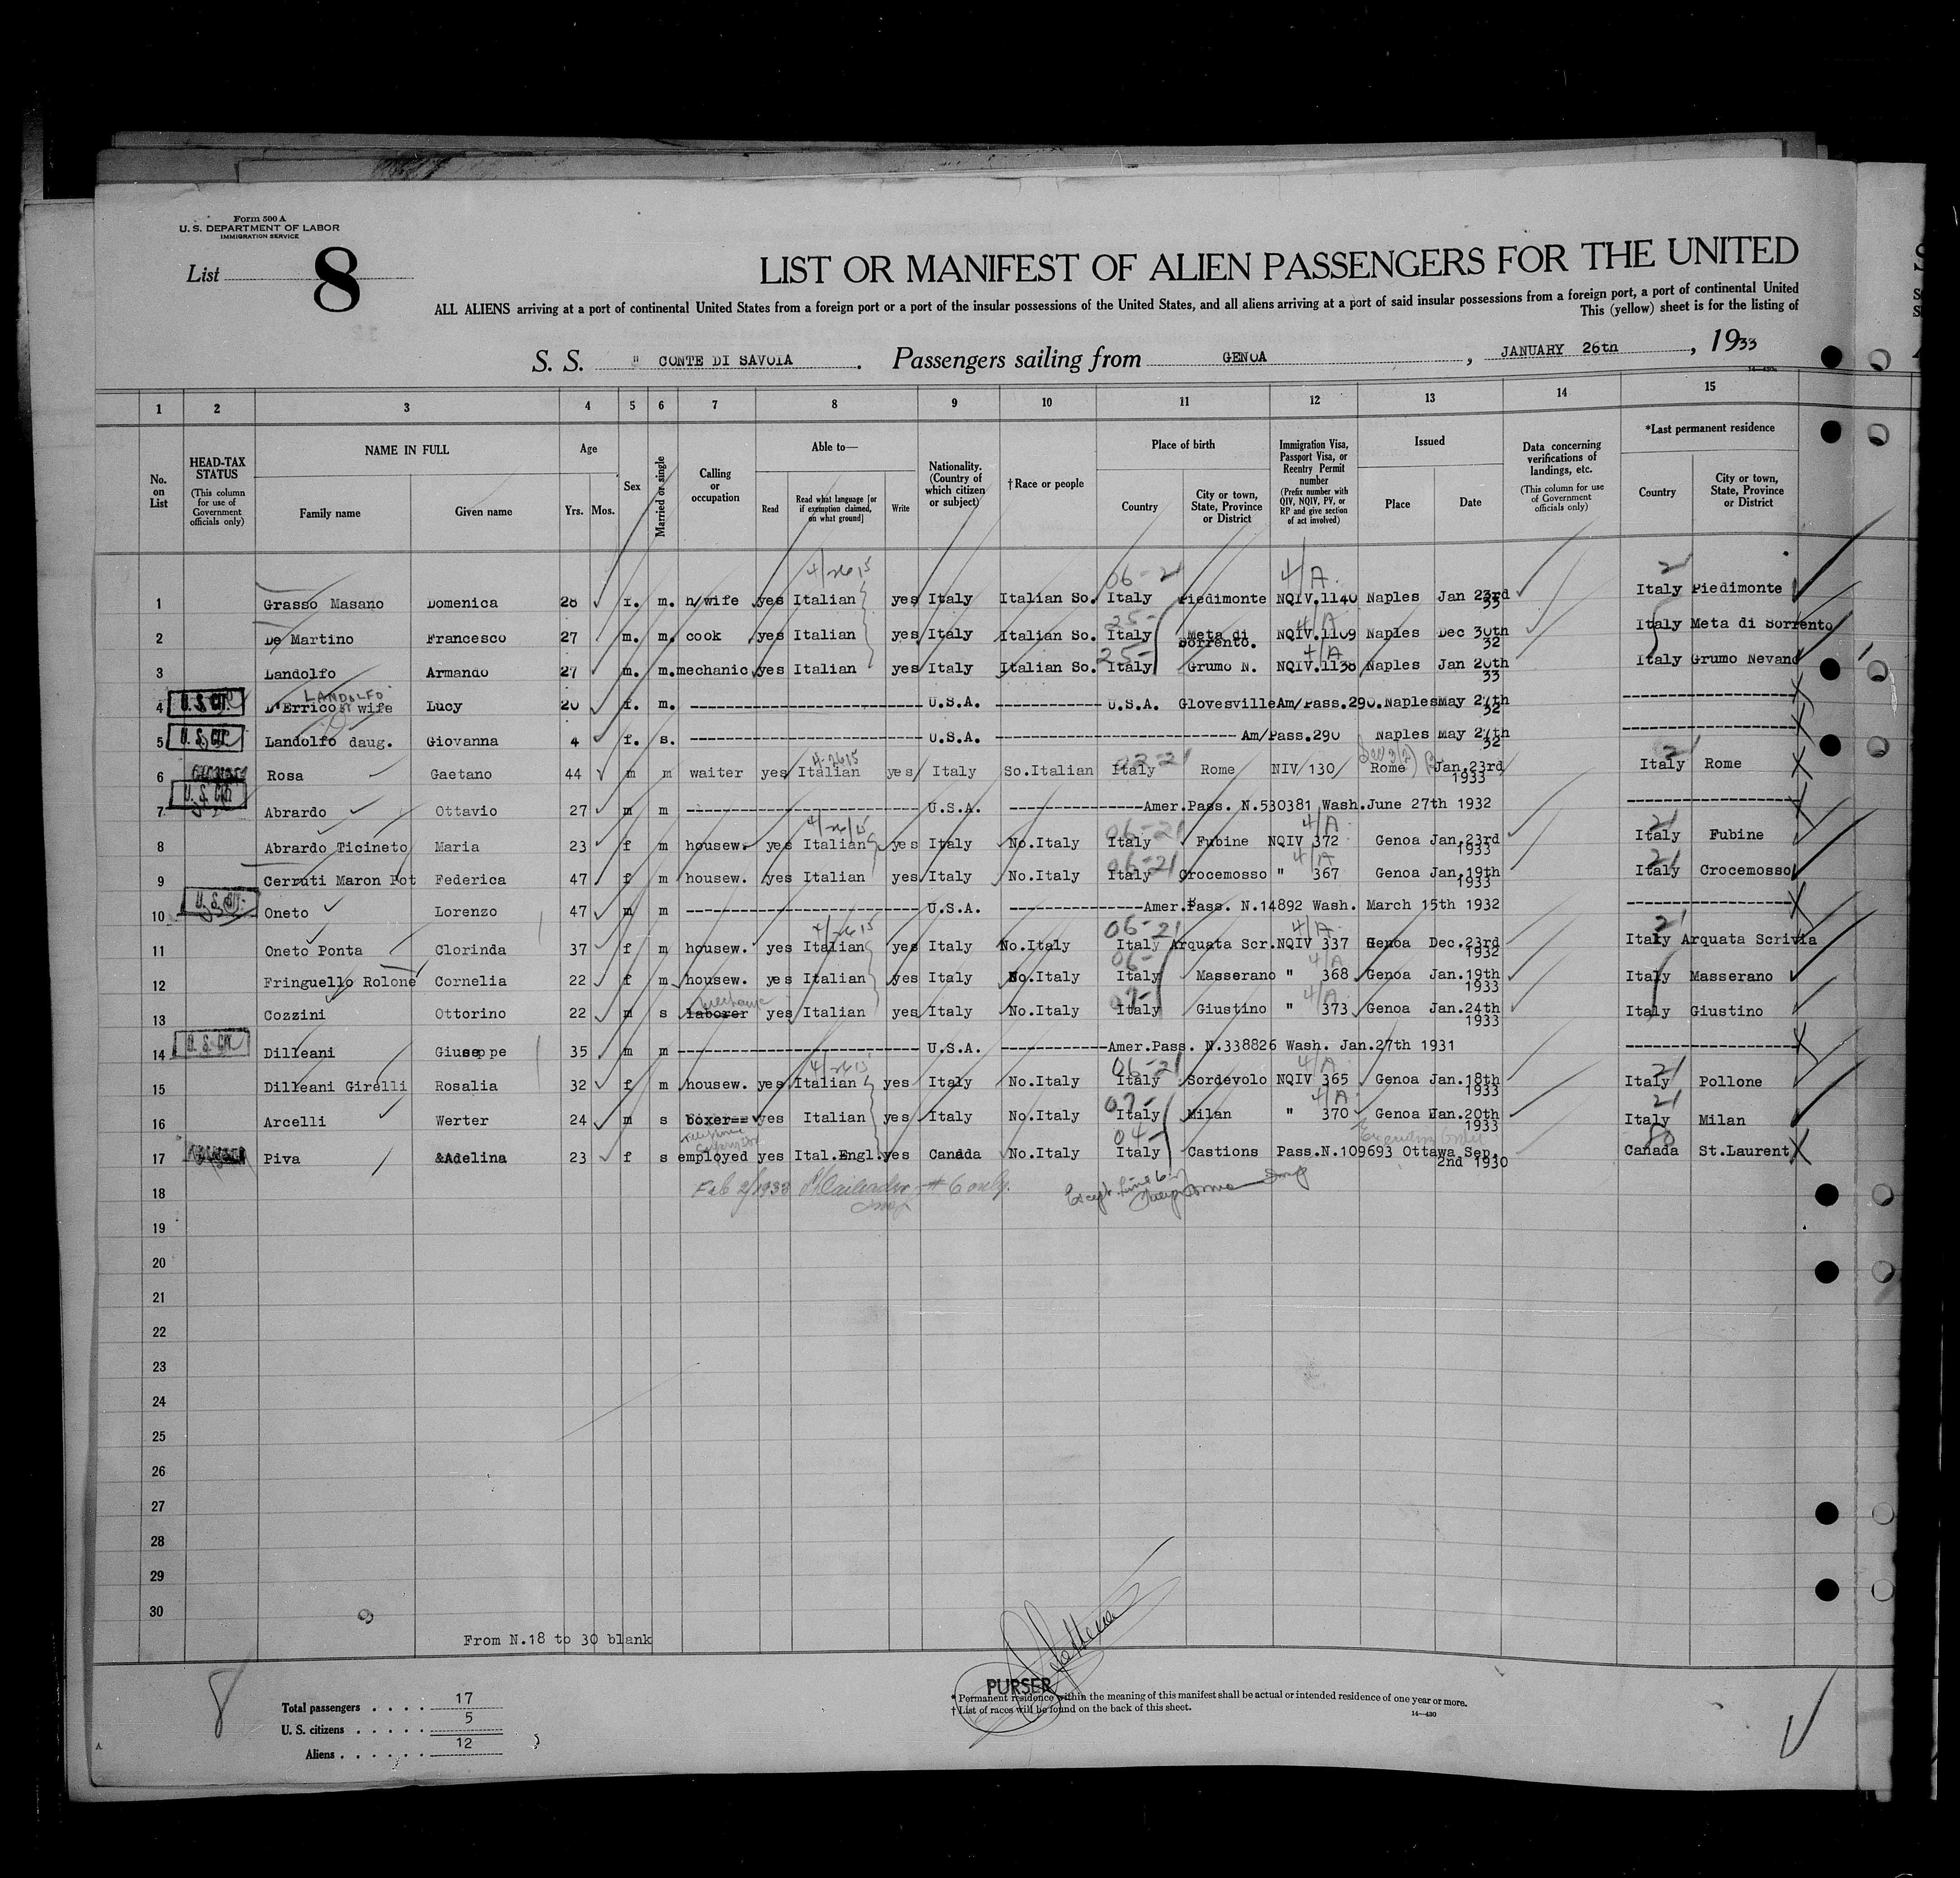 Form 500 A
U. S. DEPARTMENT OF LABOR
IMMIGRATION SERVICE
List 8
LIST OR MANIFEST OF ALIEN PASSENGERS FOR THE UNITED
ALL ALIENS arriving at a port of continental United States from a foreign port or a port of the insular possessions of the United States, and all aliens arriving at a port of said insular possessions from a foreign port, a port of continental United
This (yellow) sheet is for the listing of
S. S. " CONTE DI SAVOIA . Passengers sailing from GENOA , JANUARY 26th , 1933
1 2 3 4 5 6 7 8 9 10 11 12 13 14 15
No. on List
HEAD-TAX STATUS
(This column for use of Government officials only)
NAME IN FULL
Family name Given name
Age
Yrs. Mos.
Sex
Married or single
Calling or occupation
Able to—
Read
Read what language [or if exemption claimed, on what ground]
Write
Nationality. (Country of which citizen or subject)
†Race or people
Place of birth
Country
City or town, State, Province or District
Immigration Visa, Passport Visa, or Reentry Permit number
(Prefix number with QIV, NQIV, PV, or RP and give section of act involved)
Issued
Place Date
Data concerning verifications of landings, etc.
(This column for use of Government officials only)
*Last permanent residence
Country
City or town, State, Province or District
4/2615 06-21 4/A 21
1 Grasso Masano Domenica 28 f. m. h/wife yes Italian yes Italy Italian So. Italy Piedimonte NQIV.1140 Naples Jan 23rd 33 Italy Piedimonte
25- 4/A
2 De Martino Francesco 27 m. m. cook yes Italian yes Italy Italian So. Italy Meta di Sorrento. NQIV.1109 Naples Dec 30th 32 Italy Meta di Sorrento
25- 4/A
3 Landolfo Armando 27 m. m. mechanic yes Italian yes Italy Italian So. Italy Grumo N. NQIV.1138 Naples Jan 20th 33 Italy Grumo Nevano
LANDOLFO
4 U.S.CIT. D'Errico wife Lucy 20 f. m. U.S.A. U.S.A. Glovesville Am/Pass.290.Naples May 27th 32
5 U.S.CIT. Landolfo daug. Giovanna 4 f. s. U.S.A. Am/Pass.290 Naples May 27th 32
4-2615 02-21 Sec 3(2) 21
6 Rosa Gaetano 44 m m waiter yes Italian yes Italy So.Italian Italy Rome NIV/130/ Rome Jan.23rd 1933 Italy Rome
7 U.S.CIT. Abrardo Ottavio 27 m m U.S.A. Amer.Pass. N.530381 Wash.June 27th 1932
4/2615 06-21 4/A 21
8 Abrardo Ticineto Maria 23 f m housew. yes Italian yes Italy No.Italy Italy Fubine NQIV 372 Genoa Jan.23rd 1933 Italy Fubine
06-21 4/A 21
9 Cerruti Maron Pot Federica 47 f m housew. yes Italian yes Italy No.Italy Italy Crocemosso " 367 Genoa Jan.19th 1933 Italy Crocemosso
10 U.S.CIT. Oneto Lorenzo 47 m m U.S.A. Amer.Pass. N.14892 Wash. March 15th 1932
4/2615 06-21 4/A 21
11 Oneto Ponta Clorinda 37 f m housew. yes Italian yes Italy No.Italy Italy Arquata Scr. NQIV 337 Genoa Dec.23rd 1932 Italy Arquata Scrivia
06- 4/A
12 Fringuello Rolone Cornelia 22 f m housew. yes Italian yes Italy No.Italy Italy Masserano " 368 Genoa Jan.19th 1933 Italy Masserano
mechanic 07- 4/A
13 Cozzini Ottorino 22 m s laborer yes Italian yes Italy No.Italy Italy Giustino " 373 Genoa Jan.24th 1933 Italy Giustino
14 U.S.CIT. Dilleani Giuseppe 35 m m U.S.A. Amer.Pass. N.338826 Wash. Jan.27th 1931
4/2615 06-21 4/A 21
15 Dilleani Girelli Rosalia 32 f m housew. yes Italian yes Italy No.Italy Italy Sordevolo NQIV 365 Genoa Jan.18th 1933 Italy Pollone
07- 4/A 21
16 Arcelli Werter 24 m s boxer== yes Italian yes Italy No.Italy Italy Milan " 370 Genoa Jan.20th 1933 Italy Milan
04- Executive Order
17 Piva &Adelina 23 f s employed yes Ital.Engl. yes Canada No.Italy Italy Castions Pass.N.109693 Ottawa Sep. 2nd 1930 Canada St.Laurent
18 Feb 2/1933 #6 only. Except Line 6
19
20
21
22
23
24
25
26
27
28
29
30
From N.18 to 30 blank
8
Total passengers . . . . 17
U. S. citizens . . . . . 5
Aliens . . . . . . 12
PURSER
* Permanent residence within the meaning of this manifest shall be actual or intended residence of one year or more.
† List of races will be found on the back of this sheet.
14—430